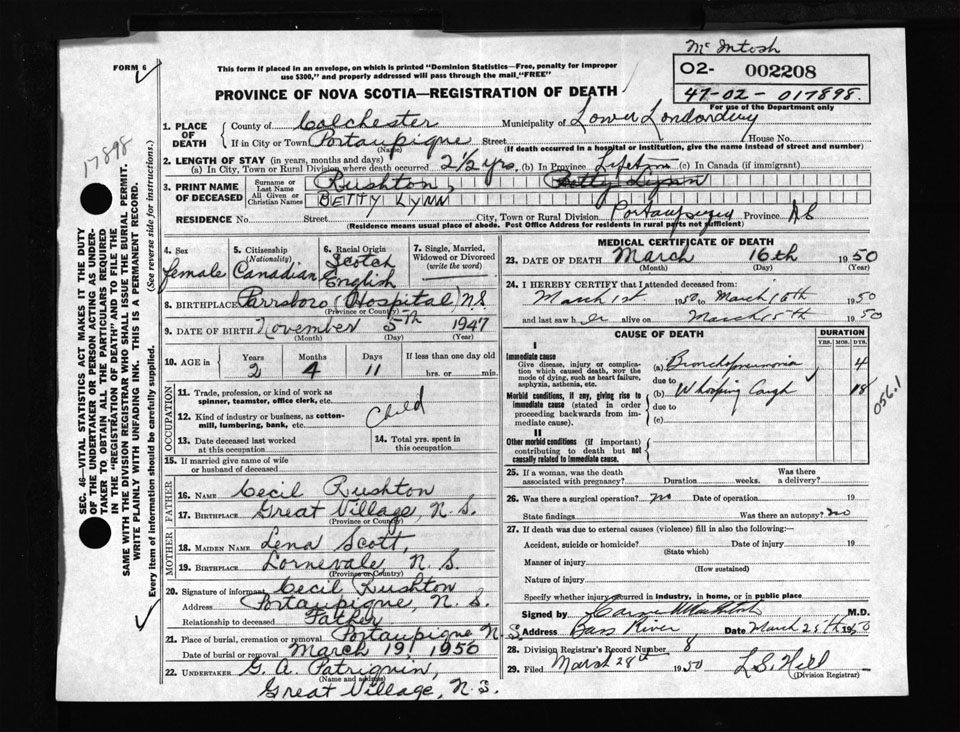 Mc Intosh
FORM 6
This form if placed in an envelope, on which is printed "Dominion Statistics—Free, penalty for improper
use $300," and properly addressed will pass through the mail, "FREE"
O2- 002208
PROVINCE OF NOVA SCOTIA—REGISTRATION OF DEATH
47-02-017898.
For use of the Department only
17898
SEC. 46—VITAL STATISTICS ACT MAKES IT THE DUTY
OF THE UNDERTAKER OR PERSON ACTING AS UNDER-
TAKER TO OBTAIN ALL THE PARTICULARS REQUIRED
IN THE "REGISTRATION OF DEATH" AND TO FILE THE
SAME WITH THE DIVISION REGISTRAR WHO SHALL ISSUE THE BURIAL PERMIT.
WRITE PLAINLY WITH UNFADING INK. THIS IS A PERMANENT RECORD.
Every item of information should be carefully supplied. (See reverse side for instructions.)
1. PLACE OF DEATH
County of Colchester Municipality of Lower Londonderry
If in City or Town Portaupique Street House No.
(Name) (If death occurred in a hospital or institution, give the name instead of street and number)
2. LENGTH OF STAY (in years, months and days)
(a) In City, Town or Rural Division where death occurred 2 1/2 yrs. (b) In Province Lifetime (c) In Canada (if immigrant)
3. PRINT NAME OF DECEASED
Surname or Last Name Rushton, Betty Lynn
All Given or Christian Names BETTY LYNN
RESIDENCE No. Street City, Town or Rural Division Portaupique Province N S
(Residence means usual place of abode. Post Office Address for residents in rural parts not sufficient)
4. Sex female
5. Citizenship (Nationality) Canadian
6. Racial Origin Scotch English
7. Single, Married, Widowed or Divorced (write the word)
8. BIRTHPLACE Parrsboro (Hospital) N S
(Province or Country)
9. DATE OF BIRTH November 5th 1947
(Month) (Day) (Year)
10. AGE in Years 2 Months 4 Days 11 If less than one day old hrs. or min.
OCCUPATION
11. Trade, profession, or kind of work as
spinner, teamster, office clerk, etc.
Child
12. Kind of industry or business, as cotton-
mill, lumbering, bank, etc.
13. Date deceased last worked
at this occupation
14. Total yrs. spent in
this occupation
15. If married give name of wife
or husband of deceased
FATHER
16. NAME Cecil Rushton
17. BIRTHPLACE Great Village, N. S.
(Province or Country)
MOTHER
18. MAIDEN NAME Lena Scott,
19. BIRTHPLACE Lornevale, N. S.
(Province or Country)
20. Signature of informant Cecil Rushton
Address Portaupique, N. S.
Relationship to deceased Father
21. Place of burial, cremation or removal Portaupique N. S
Date of burial or removal March 19, 1950
22. UNDERTAKER G. A. Patriquin,
(Name and address)
Great Village, N. S.
MEDICAL CERTIFICATE OF DEATH
23. DATE OF DEATH March 16th 1950
(Month) (Day) (Year)
24. I HEREBY CERTIFY that I attended deceased from:
March 1st 1950 to March 16th 1950
and last saw h er alive on March 15th 1950
CAUSE OF DEATH
DURATION
YRS. MOS. DYS.
I
Immediate cause
Give disease, injury or complica-
tion which caused death, NOT the
mode of dying, such as heart failure,
asphyxia, asthenia, etc.
(a) Bronchopneumonia 4
due to
Morbid conditions, if any, giving rise to
immediate cause (stated in order
proceeding backwards from im-
mediate cause).
(b) Whooping Cough 18
due to
(c)
056.1
II
Other morbid conditions (if important)
contributing to death but not
causally related to immediate cause.
25. If a woman, was the death
associated with pregnancy? Duration weeks. Was there
a delivery?
26. Was there a surgical operation? no Date of operation 19
State findings Was there an autopsy? no
27. If death was due to external causes (violence) fill in also the following:—
Accident, suicide or homicide? Date of injury 19
(State which)
Manner of injury
(How sustained)
Nature of injury
Specify whether injury occurred in industry, in home, or in public place
Signed by M.D.
Address Bass River Date March 25th 1950
28. Division Registrar's Record Number 8
29. Filed March 28th 1950 L S. Hill
(Division Registrar)